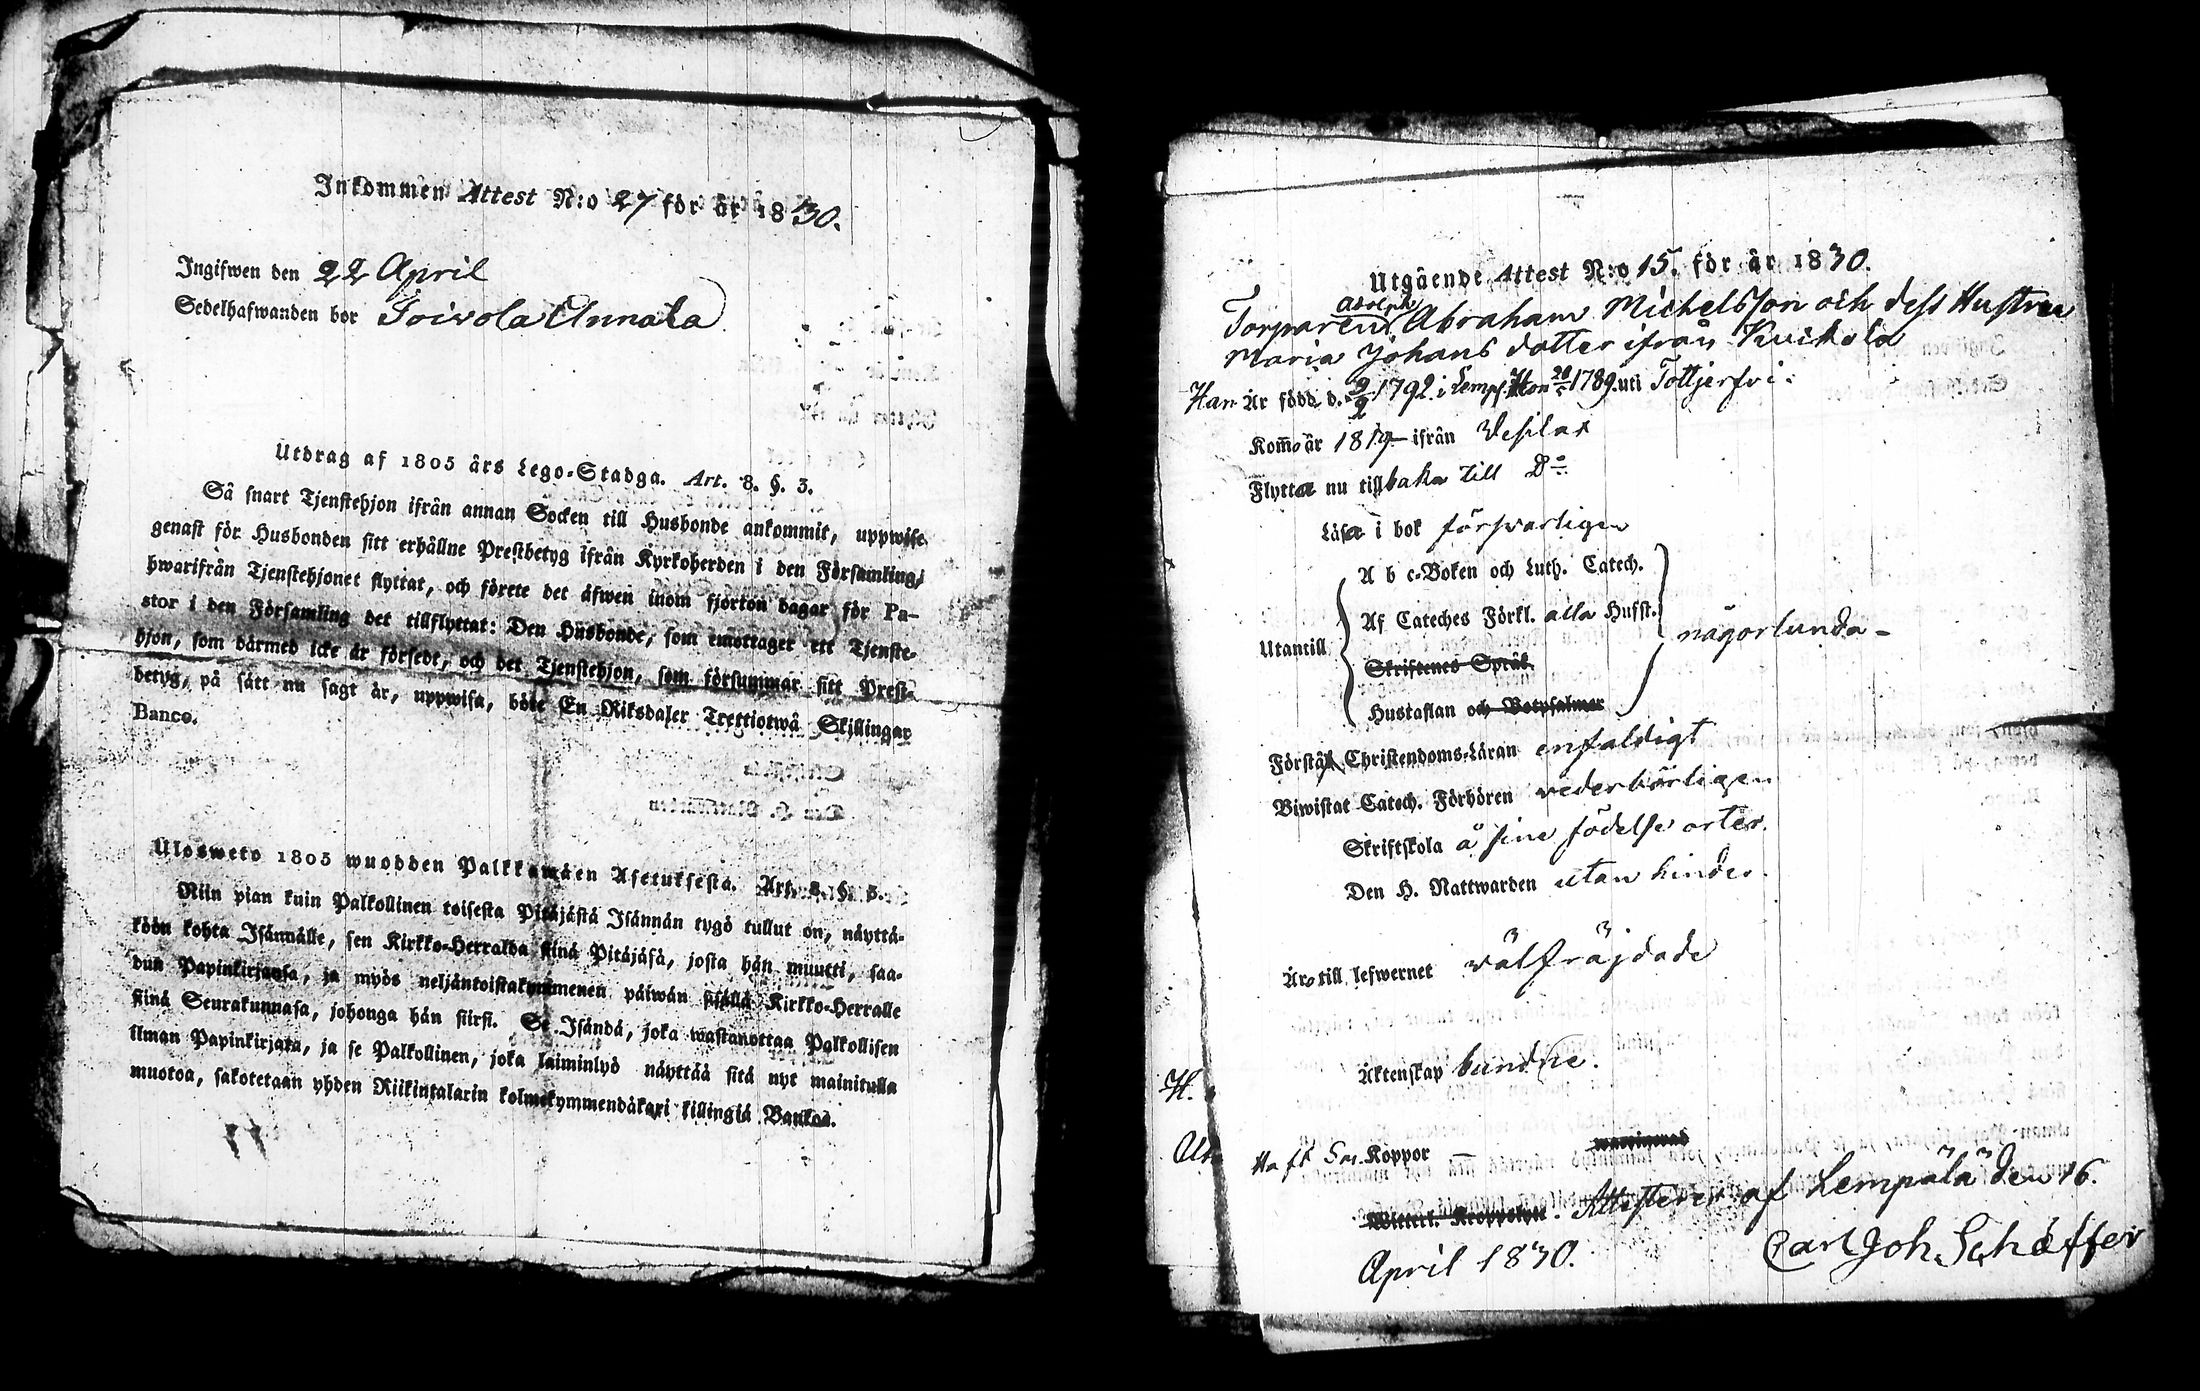 Inkommen Attest N:o 27 för år 1830.
Ingifwen den 22 April
Sedelhafwanden bor Toivola Annala
Utdrag af 1805 års Lego-Stadga. Art. 8. §. 3.
Så snart Tjenstehjon ifrån annan Socken till Husbonde ankommit, uppwise
genast för Husbonden sitt erhållne Prestbetyg ifrån Kyrkoherden i den Församling,
hwarifrån Tjenstehjonet flyttat, och förete det äfwen inom fjorton dagar för Pa-
stor i den Församling det tillflyttat: Den Husbonde, som emottager ett Tjenste-
hjon, som därmed icke är försedt, och det Tjenstehjon, som försummar sitt Prest-
betyg, på sätt nu sagt är, uppwisa, böte En Riksdaler Trettiotwå Skillingar
Banco.
Ulosweto 1805 wuodden Palkkawäen Asetuksesta. Art. 8. §. 3.
Niin pian kuin Palkollinen toisesta Pitäjästä Isännän tygö tullut on, näyttä-
köön kohta Isännälle, sen Kirkko-Herralda siinä Pitäjäsä, josta hän muutti, saa-
dun Papinkirjansa, ja myös neljäntoistakymmenen päiwän sisällä Kirkko-Herralle
siinä Seurakunnasa, johonga hän siirsi. Se Isändä, joka wastanottaa Palkollisen
ilman Papinkirjata, ja se Palkollinen, joka laiminlyö näyttää sitä nyt mainitulla
muotoa, sakotetaan yhden Riikintalarin kolmekymmendäkaxi killingiä Bankoa.
Utgående Attest N:o 15. för år 1830.
Adolph
Torparen Abraham Michelsson och dess Hustru
Maria Johans dotter ifrån Kuikola
Han Är född d. 2/9 1792 i Lemp. Hon 1789. uti Tottjerfvi.
Kom̄o år 1819 ifrån Vesilax
Flytta nu tillbaka till D:o
Läsa i bok försvarligen
A b c-Boken och Luth. Catech.
Af Cateches Förkl. alla Hufst.
Utantill
någorlunda -
Skriftenes Språk
Hustaflan och Botpsalmer
Förstå Christendoms-Läran enfaldigt
Biwistat Catech. Förhören vederbörligen
Skriftskola å sine födelse orter.
Den H. Nattwarden utan hinder.
Äro till lefwernet välfräjdade
Äktenskap bundne.
H.
Haft Koppor
waccinerad
Witterl. Kroppslyte. Attesteres af Lempälä den 16.
April 1830. Carl Joh. Schäffer